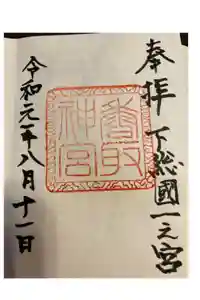 奉拝 下総國一之宮
香取神宮
令和元年八月十一日